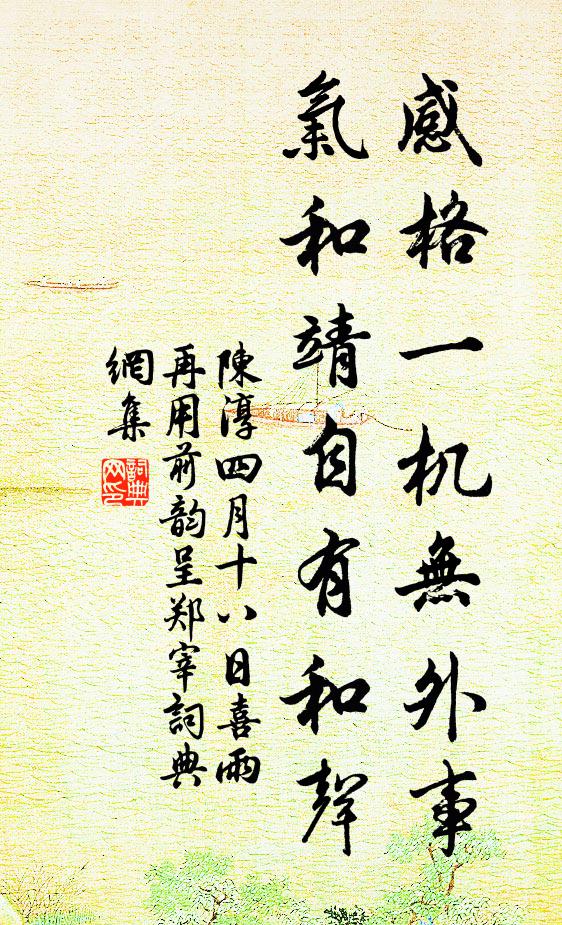 感格一机無外事
氣和靖自有和聲
陳淳四月十八日喜雨
再用前韵呈郑宰詞典
網集
詞典
网印